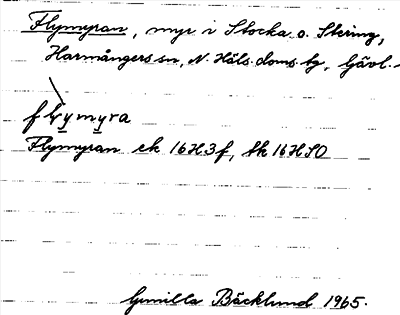 Flymyran, myr i Stocka o. Stering,
Harmångers sn, N. Häls. doms. bg, Gävl.
flymyra
Flymyran ek 16H3f, sk 16HSO
Gunilla Bäcklund 1965.